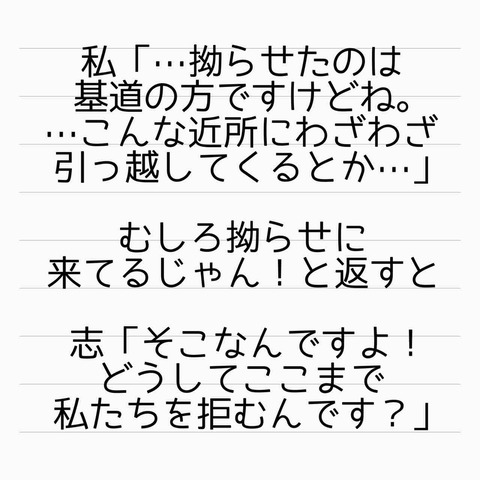 私「…拗らせたのは
基道の方ですけどね。
…こんな近所にわざわざ
引っ越してくるとか…」
むしろ拗らせに
来てるじゃん！と返すと
志「そこなんですよ！
どうしてここまで
私たちを拒むんです？」